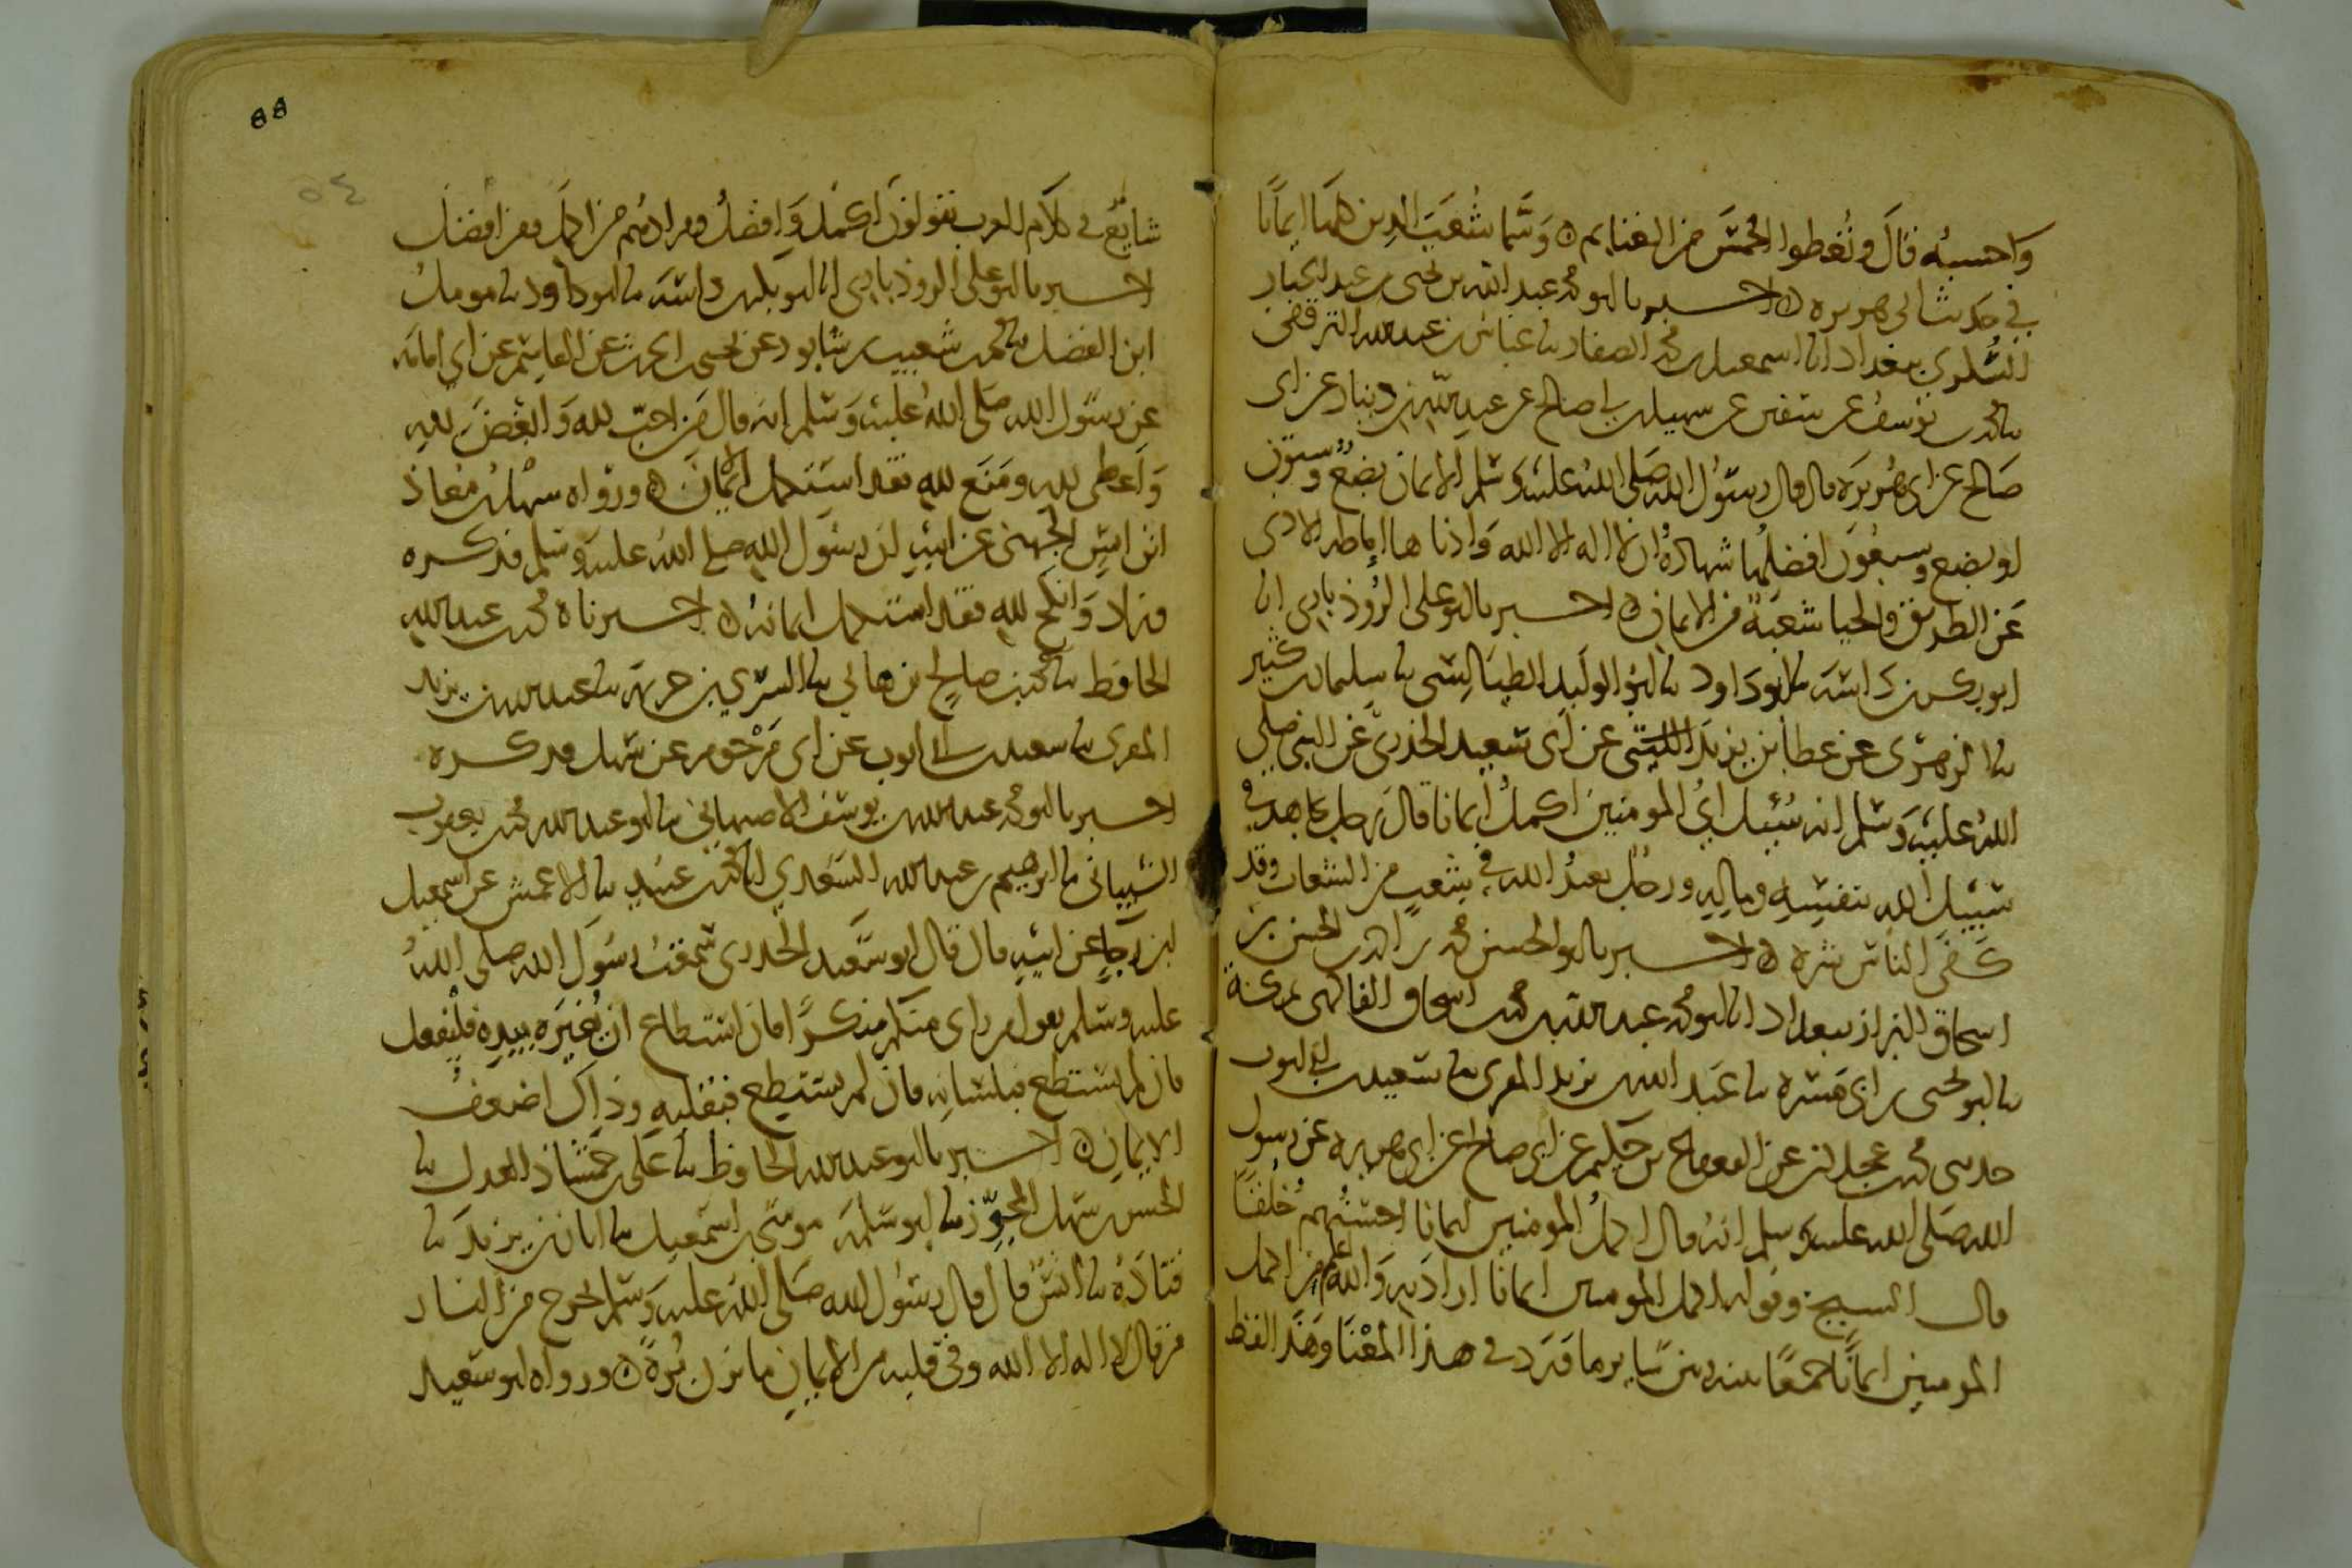 واحسبه قال وتعطوا الخمس من الغنايم ه وسَمَّا شُعَبَ الدين هَهُنا ايمانًا
في حديث ابي هريره ه اخــبرنا ابو محمد عبد الله بن يحيى بن عبد الجبار
السُّكري ببغداد انا اسمعيل بن محمد الصفار نا عباس بن عبد الله الترقفي
نا محمد بن يوسف عن سفين عن سهيل بن ابي صالح عن عبد الله بن دينار عن ابي
صالح عن ابي هُريرَه قال قال رسُول الله صَلى اللهُ عليه وسَلم الايمان بضعٌ وستون
او بضع وسبعُون افضلُها شهادةُ ان لا اله الا الله وَادناها اماطه الاذى
عَن الطريق والحيا شعبَة من الايمان ه اخــبرنا ابو علي الرُّوذباري انا
ابو بكر بن داسَه نا ابو داود نا ابو الوليد الطيَالِسي نا سليمان بن كثير
نا الزهري عن عطا بن يزيدَ الليثي عن ابي سَعيد الخدري عن النبي صلى
اللهُ عليه وَسَلم انه سُئِل ايُّ المومنين اكملُ ايمانا قال رجل يجاهد في
سَبيل الله بنفسِه وماله ورجل يعبدُ الله في شعبٍ من الشعاب وقد
كَفَى الناسَ شره ه اخــبرنا ابو الحسن محمد بن احمد بن الحسن بن
اسحاق البزاز ببغداد انا ابو محمد عبد الله بن محمد بن اسحاق الفاكهي بمكة
نا ابو يحيى بن ابي مَسَرة نا عَبد الله بن يزيد المقري نا سَعيد بن ابي ايوب
حدثني محمد بن عجلان عن القعقاع بن حكيم عن ابي صالح عن ابي هريره عن رسول
الله صَلى الله عليه وسلم انهُ قال اكملُ المومنين ايمانا احسَنُهم خُلُقًا
قال الشيخ وقوله اكمل المومنين ايمانا اراد به وَالله اعلم من اكمل
المومنين ايمانًا جمعًا بينه وبين سَاير ما وَرَد في هذا المعْنَا وَهَذا لفظ
شايع في كلَام العرب يقولونَ اكمل وَافضلُ ومرادهُم من اكمل ومن افضل
اخــبرنا ابو علي الروذباري انا ابو بكر بن داسَه نا ابو داود نا مومل
ابن الفضل نا محمد بن شعيب بن شابور عن يحيى بن الحرث عن القاسِم عن ابي امامَه
عن رسُول الله صَلى اللهُ عليه وَسَلم انه قال مَن احبّ لله وَابغضَ لله
وَاعطى لله ومَنَع لله فقد استكمل الايمانَ ه ورواه سهل بن معاذ
ابن انسٍ الجهني عن ابيه ان رسُول الله صلى اللهُ عليه وسَلم فذكــره
وزاد وَانكحَ لله فقد استكمل ايمانهُ ه اخــبرناه محمد بن عبد الله
الحافظ نا محمد بن صالح بن هاني نا السري بن خزيمة نا عبد الله بن يزيد
المقري نا سعيد بن ابي ايوب عن ابي مَرْحوم عن سَهل فذكــره
اخــبرنا ابو محمد عبد الله بن يوسف الاصبهاني نا ابو عبد الله محمد بن يعقوب
الشيباني نا ابرهيم بن عبد الله السَعدي انا محمد بن عبيد نا الاعمش عن اسمعيل
ابن رَجاءٍ عن ابيه قال قال ابو سَعيد الخدري سَمعتُ رسُول الله صلى اللهُ
عليه وسَلم يقول من راى منكم منكرًا فان استطاع ان يُغيرَه بيده فليفعل
فان لم يستطع فبلسَانِه فان لم يستطِع فبقلبه وذاك اضعفُ
الايمانِ ه اخــبرنا ابو عبد الله الحافظ نا عَلي بن حمشاذ العدل نا
الحسن بن سَهل المجوّز نا ابو سَلمَة موسَى بن اسمعيل نا ابان بن يزيدَ نا
قتادَهُ نا انسٌ قال قال رسُول الله صَلى اللهُ عليه وَسَلم يخرج من النار
من قال لا اله الا الله وفي قلبه من الايمانِ ما يزن بُرةً ه ورواه ابو سَعيد
88
٥٤